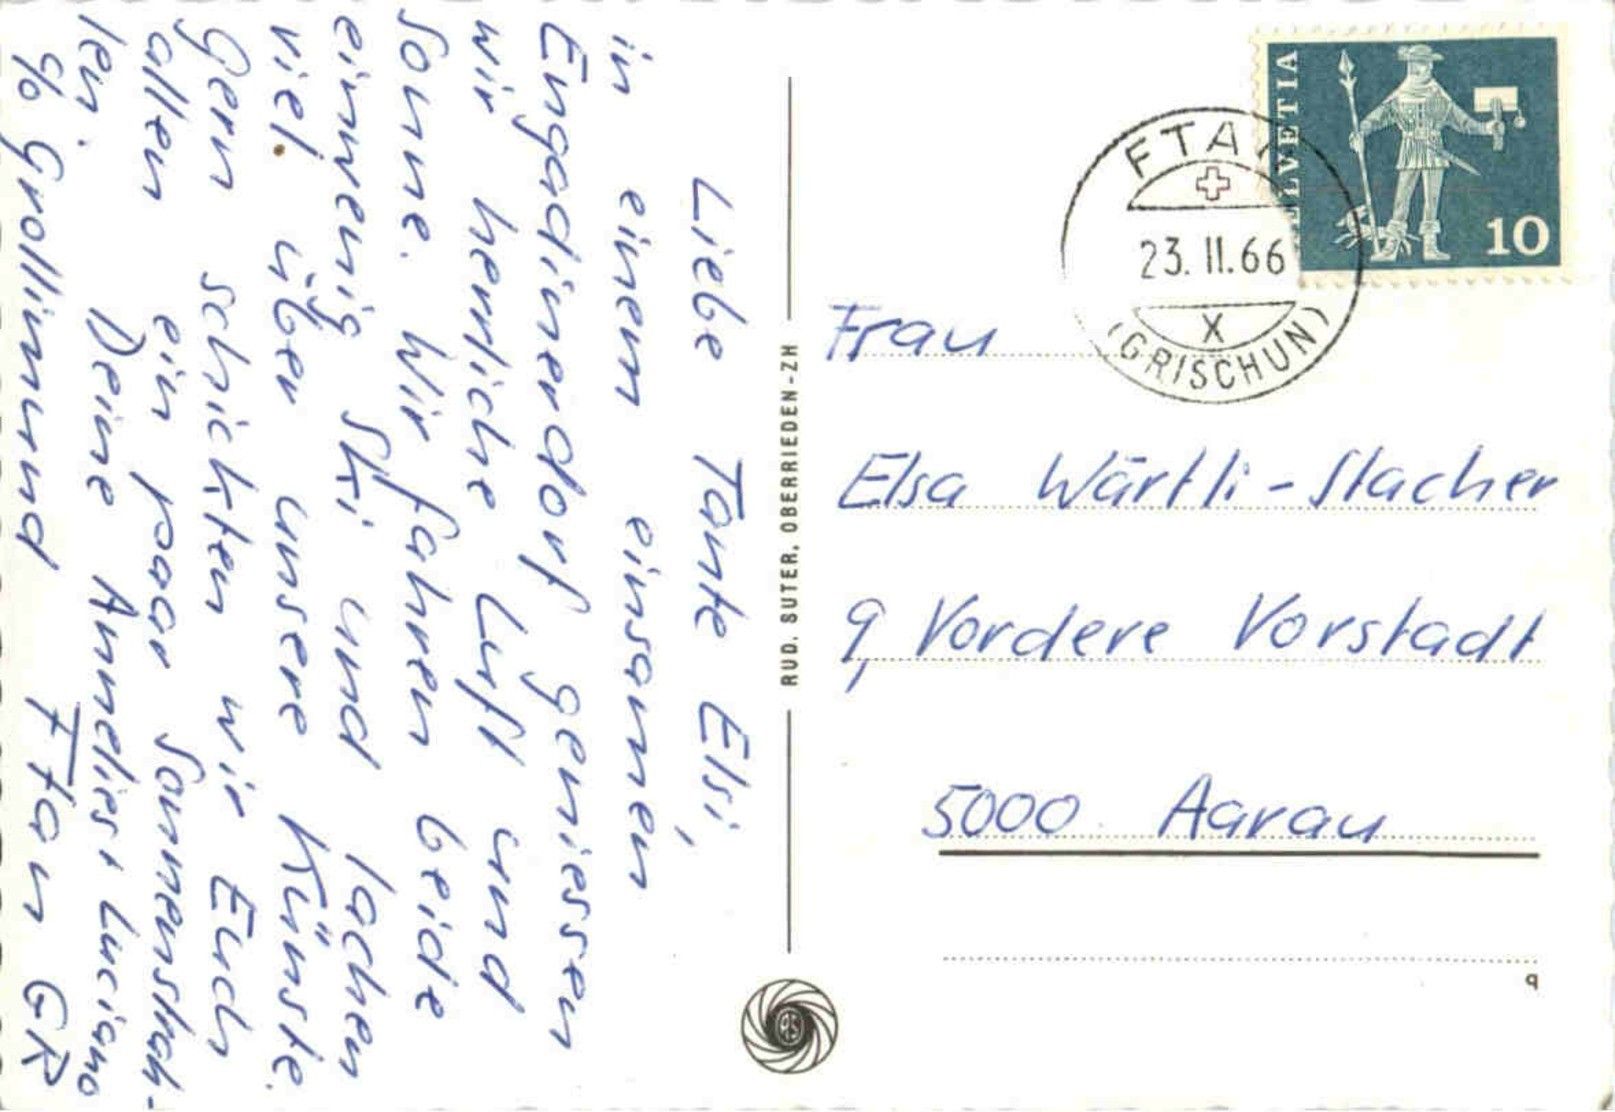 Liebe Tante Elsi,
in einem einsamen
Engadinerdorf geniessen
wir herrliche Luft und
Sonne. Wir fahren beide
einwenig Ski und lachen
viel über unsere Künste.
Gern schickten wir Euch
allen ein paar Sonnenstrah-
len. Deine Annelies + Luciano
c/o Grollimund Ftan GR
RUD. SUTER, OBERRIEDEN-ZH
HELVETIA
10
FTAN
23.II.66
X
(GRISCHUN)
Frau
Elsa Wärtli-Stacher
9, Vordere Vorstadt
5000 Aarau
q